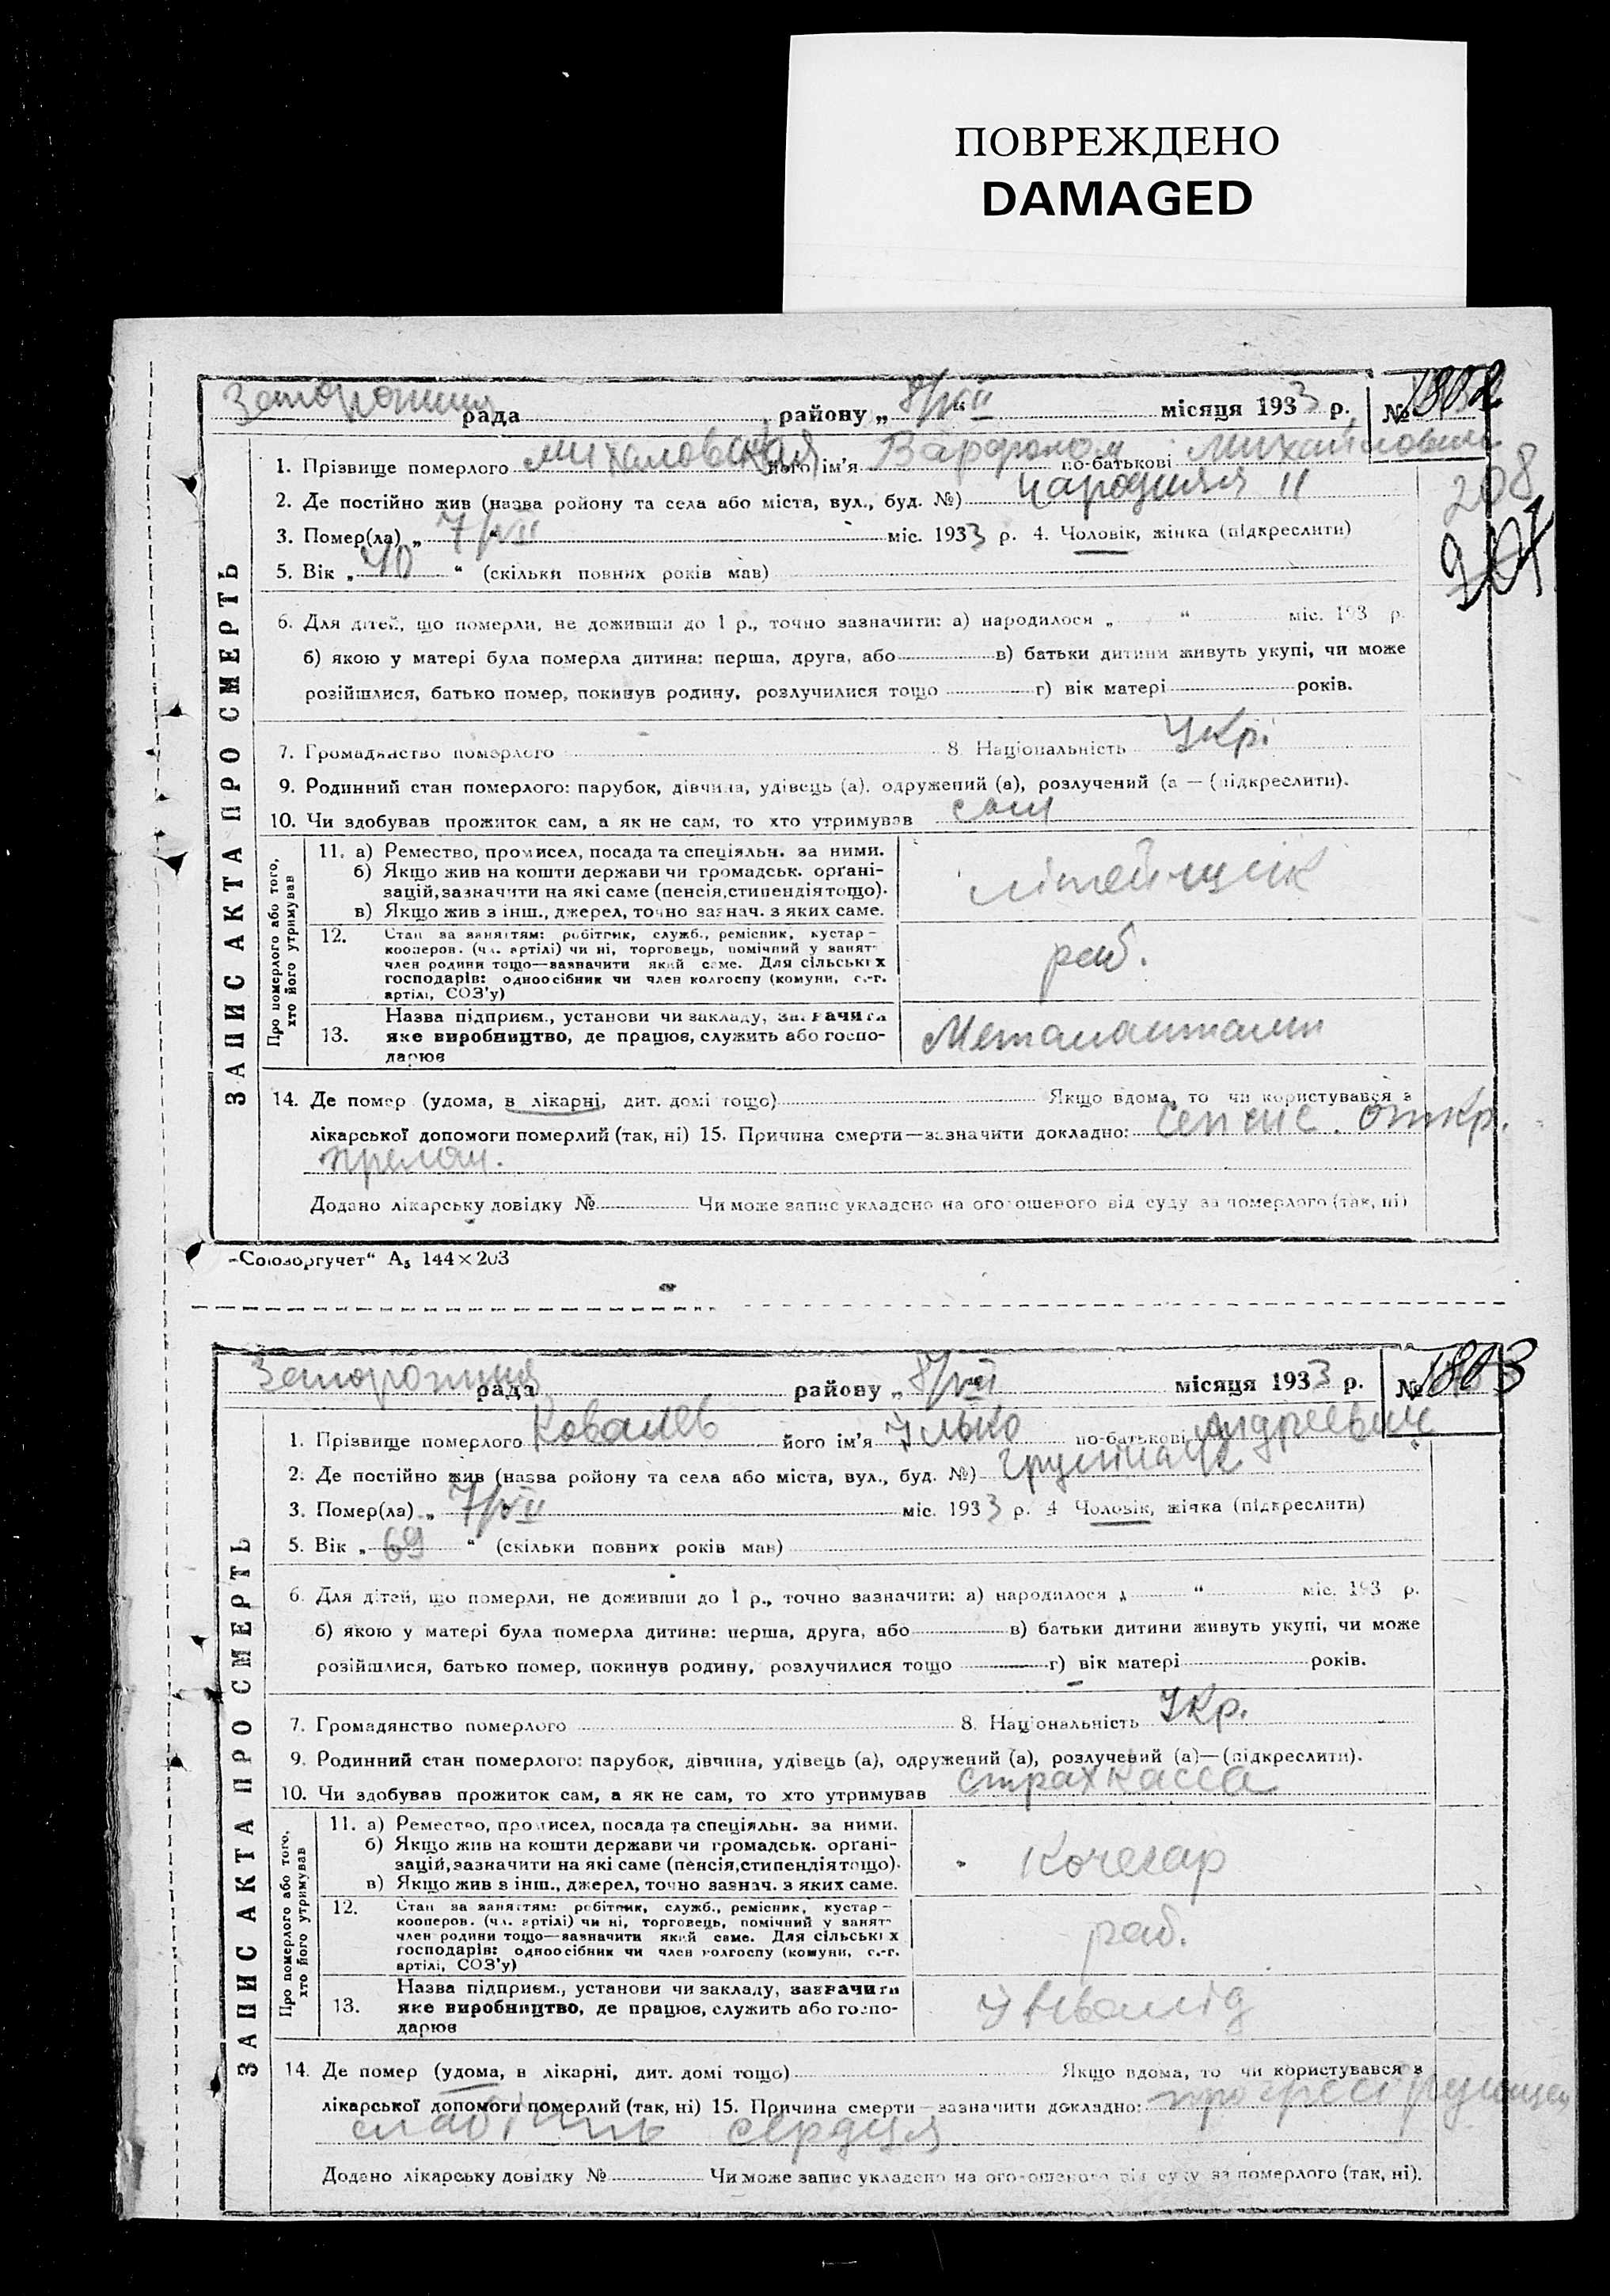 ПОВРЕЖДЕНО
DAMAGED
рада району „8/VII“ місяця 1933 р. № 1802
1. Прізвище померлого його ім'я по-батькові
208
2. Де постійно жив (назва ройону та села або міста, вул., буд. №) 11
3. Помер(ла) „7/VII“ міс. 1933 р. 4. Чоловік, жінка (підкреслити)
5. Вік „40“ (скільки повних років мав)
6. Для дітей, що померли, не доживши до 1 р., точно зазначити: а) народилося „ “ міс. 193 р.
б) якою у матері була померла дитина: перша, друга, або в) батьки дитини живуть укупі, чи може
розійшлися, батько помер, покинув родину, розлучилися тощо г) вік матері років.
7. Громадянство померлого 8. Національність Укр.
9. Родинний стан померлого: парубок, дівчина, удівець (а), одружений (а), розлучений (а — (підкреслити).
10. Чи здобував прожиток сам, а як не сам, то хто утримував сам
ЗАПИС АКТА ПРО СМЕРТЬ
Про померлого або того,
хто його утримував
11. а) Ремество, промисел, посада та спеціяльн. за ними.
б) Якщо жив на кошти держави чи громадськ. орґані-
зацій, зазначити на які саме (пенсія, стипендія тощо).
в) Якщо жив з інш., джерел, точно зазнач. з яких саме.
літейщик
12. Стан за заняттям: робітник, служб., ремісник, кустар—
кооперов. (чл. артілі) чи ні, торговець, помічний у занят-
член родини тощо—зазначити який саме. Для сільських
господарів: одноосібник чи член колгоспу (комуни, с.-г.
артілі, СОЗ'у)
раб.
13. Назва підприєм., установи чи закладу, зазначити
яке виробництво, де працює, служить або госпо-
дарює
14. Де помер (удома, в лікарні, дит. домі тощо) Якщо вдома, то чи користувався з
лікарської допомоги померлий (так, ні) 15. Причина смерти—зазначити докладно: Сепсис. откр.
прелом.
Додано лікарську довідку № Чи може запис укладено на оголошеного від суду за померлого (так, ні)
„Союзоргучет“ А5 144×203
рада району „8/VII“ місяця 1933 р. № 1803
1. Прізвище померлого Ковалев його ім'я Ілько по-батькові Андреевич
2. Де постійно жив (назва ройону та села або міста, вул., буд. №)
3. Помер(ла) „7/VII“ міс. 1933 р. 4 Чоловік, жінка (підкреслити)
5. Вік „69“ (скільки повних років мав)
6. Для дітей, що померли, не доживши до 1 р., точно зазначити: а) народилося „ “ міс. 193 р.
б) якою у матері була померла дитина: перша, друга, або в) батьки дитини живуть укупі, чи може
розійшлися, батько помер, покинув родину, розлучилися тощо г) вік матері років.
7. Громадянство померлого 8. Національність Укр.
9. Родинний стан померлого: парубок, дівчина, удівець (а), одружений (а), розлучений (а)—(підкреслити).
10. Чи здобував прожиток сам, а як не сам, то хто утримував страхкасса
ЗАПИС АКТА ПРО СМЕРТЬ
Про померлого або того,
хто його утримував
11. а) Ремество, промисел, посада та спеціяльн. за ними.
б) Якщо жив на кошти держави чи громадськ. орґані-
зацій, зазначити на які саме (пенсія, стипендія тощо).
в) Якщо жив з інш., джерел, точно зазнач. з яких саме.
Кочегар
12. Стан за заняттям: робітник, служб., ремісник, кустар—
кооперов. (чл. артілі) чи ні, торговець, помічний у занят-
член родини тощо—зазначити який саме. Для сільських
господарів: одноосібник чи член колгоспу (комуни, с.-г.
артілі, СОЗ'у)
раб.
13. Назва підприєм., установи чи закладу, зазначити
яке виробництво, де працює, служить або госпо-
дарює
Інвалід
14. Де помер (удома, в лікарні, дит. домі тощо) Якщо вдома, то чи користувався з
лікарської допомоги померлий (так, ні) 15. Причина смерти—зазначити докладно:
слабість сердця
Додано лікарську довідку № Чи може запис укладено на оголошеного від суду за померлого (так, ні).